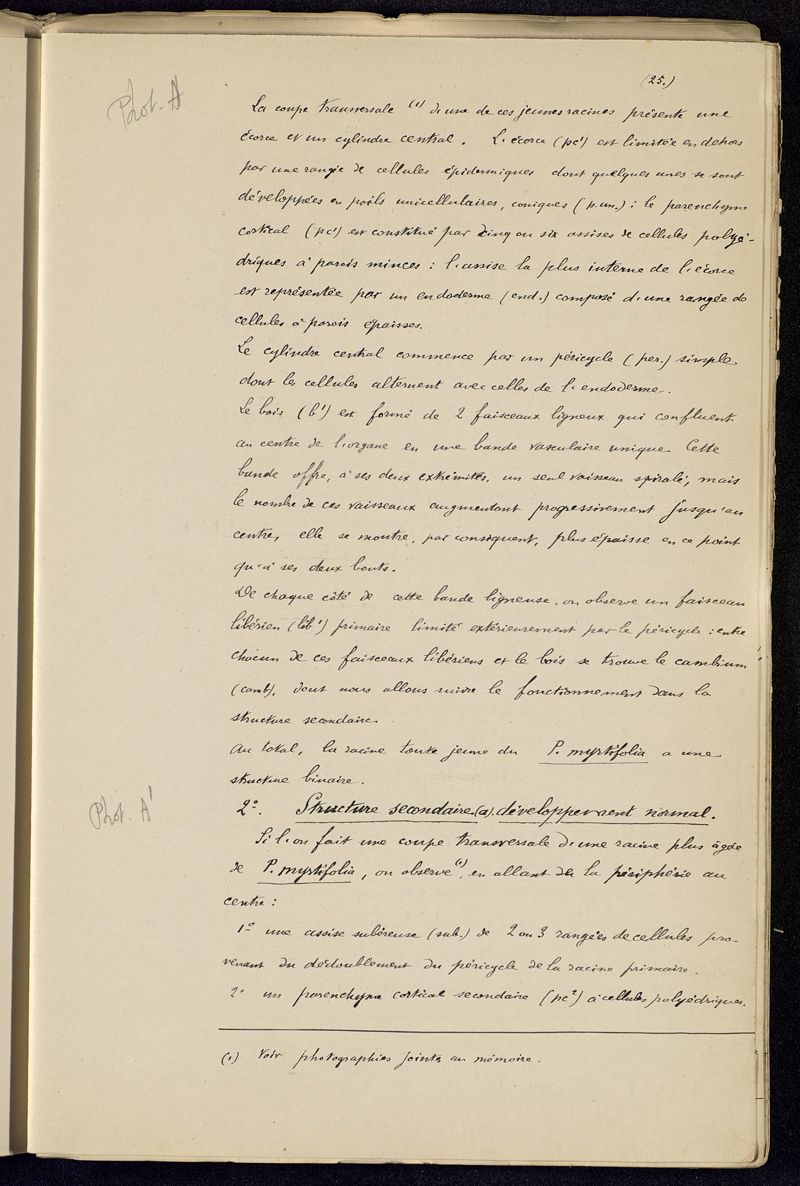 (25.)
Phot. A
La coupe transversale (1) d'une de ces jeunes racines présente une
écorce et un cylindre central. L'écorce (pc1) est limitée en dehors
par une rangée de cellules épidermiques dont quelques unes se sont
développées en poils unicellulaires, coniques (p.un.) : le parenchyme
cortical (pc1) est constitué par cinq ou six assises de cellules polyé-
driques à parois minces : l'assise la plus interne de l'écorce
est représentée par un endoderme (end.) composé d'une rangée de
cellules à parois épaisses.
Le cylindre central commence par un péricycle (per.) simple
dont les cellules alternent avec celles de l'endoderme.
Le bois (b1) est formé de 2 faisceaux ligneux qui confluent
au centre de l'organe en une bande vasculaire unique. Cette
bande offre, à ses deux extrémités, un seul vaisseau spiralé, mais
le nombre de ces vaisseaux augmentant progressivement jusqu'au
centre, elle se montre, par conséquent, plus épaisse en ce point
qu'à ses deux bouts.
De chaque côté de cette bande ligneuse, on observe un faisceau
libérien (lib1) primaire limité extérieurement par le péricycle : entre
chacun de ces faisceaux libériens et le bois se trouve le cambium
(camb), dont nous allons suivre le fonctionnement dans la
structure secondaire.
Au total, la racine toute jeune du P. myrtifolia a une
structure binaire.
Phot. A'
2°. Structure secondaire (a) développement normal.
Si l'on fait une coupe transversale d'une racine plus âgée
de P. myrtifolia, on observe (1), en allant de la périphérie au
centre :
1° une assise subéreuse (sub.) de 2 ou 3 rangées de cellules pro-
venant du dédoublement du péricycle de la racine primaire.
2° un parenchyme cortical secondaire (pc2) à cellules polyédriques.
(1) Voir photographies jointes au mémoire.